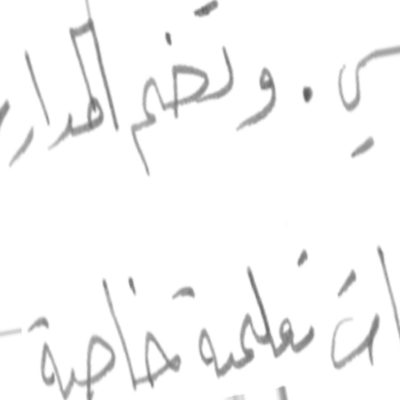 ي. وتضم المدار
ات تعليمية خاصة